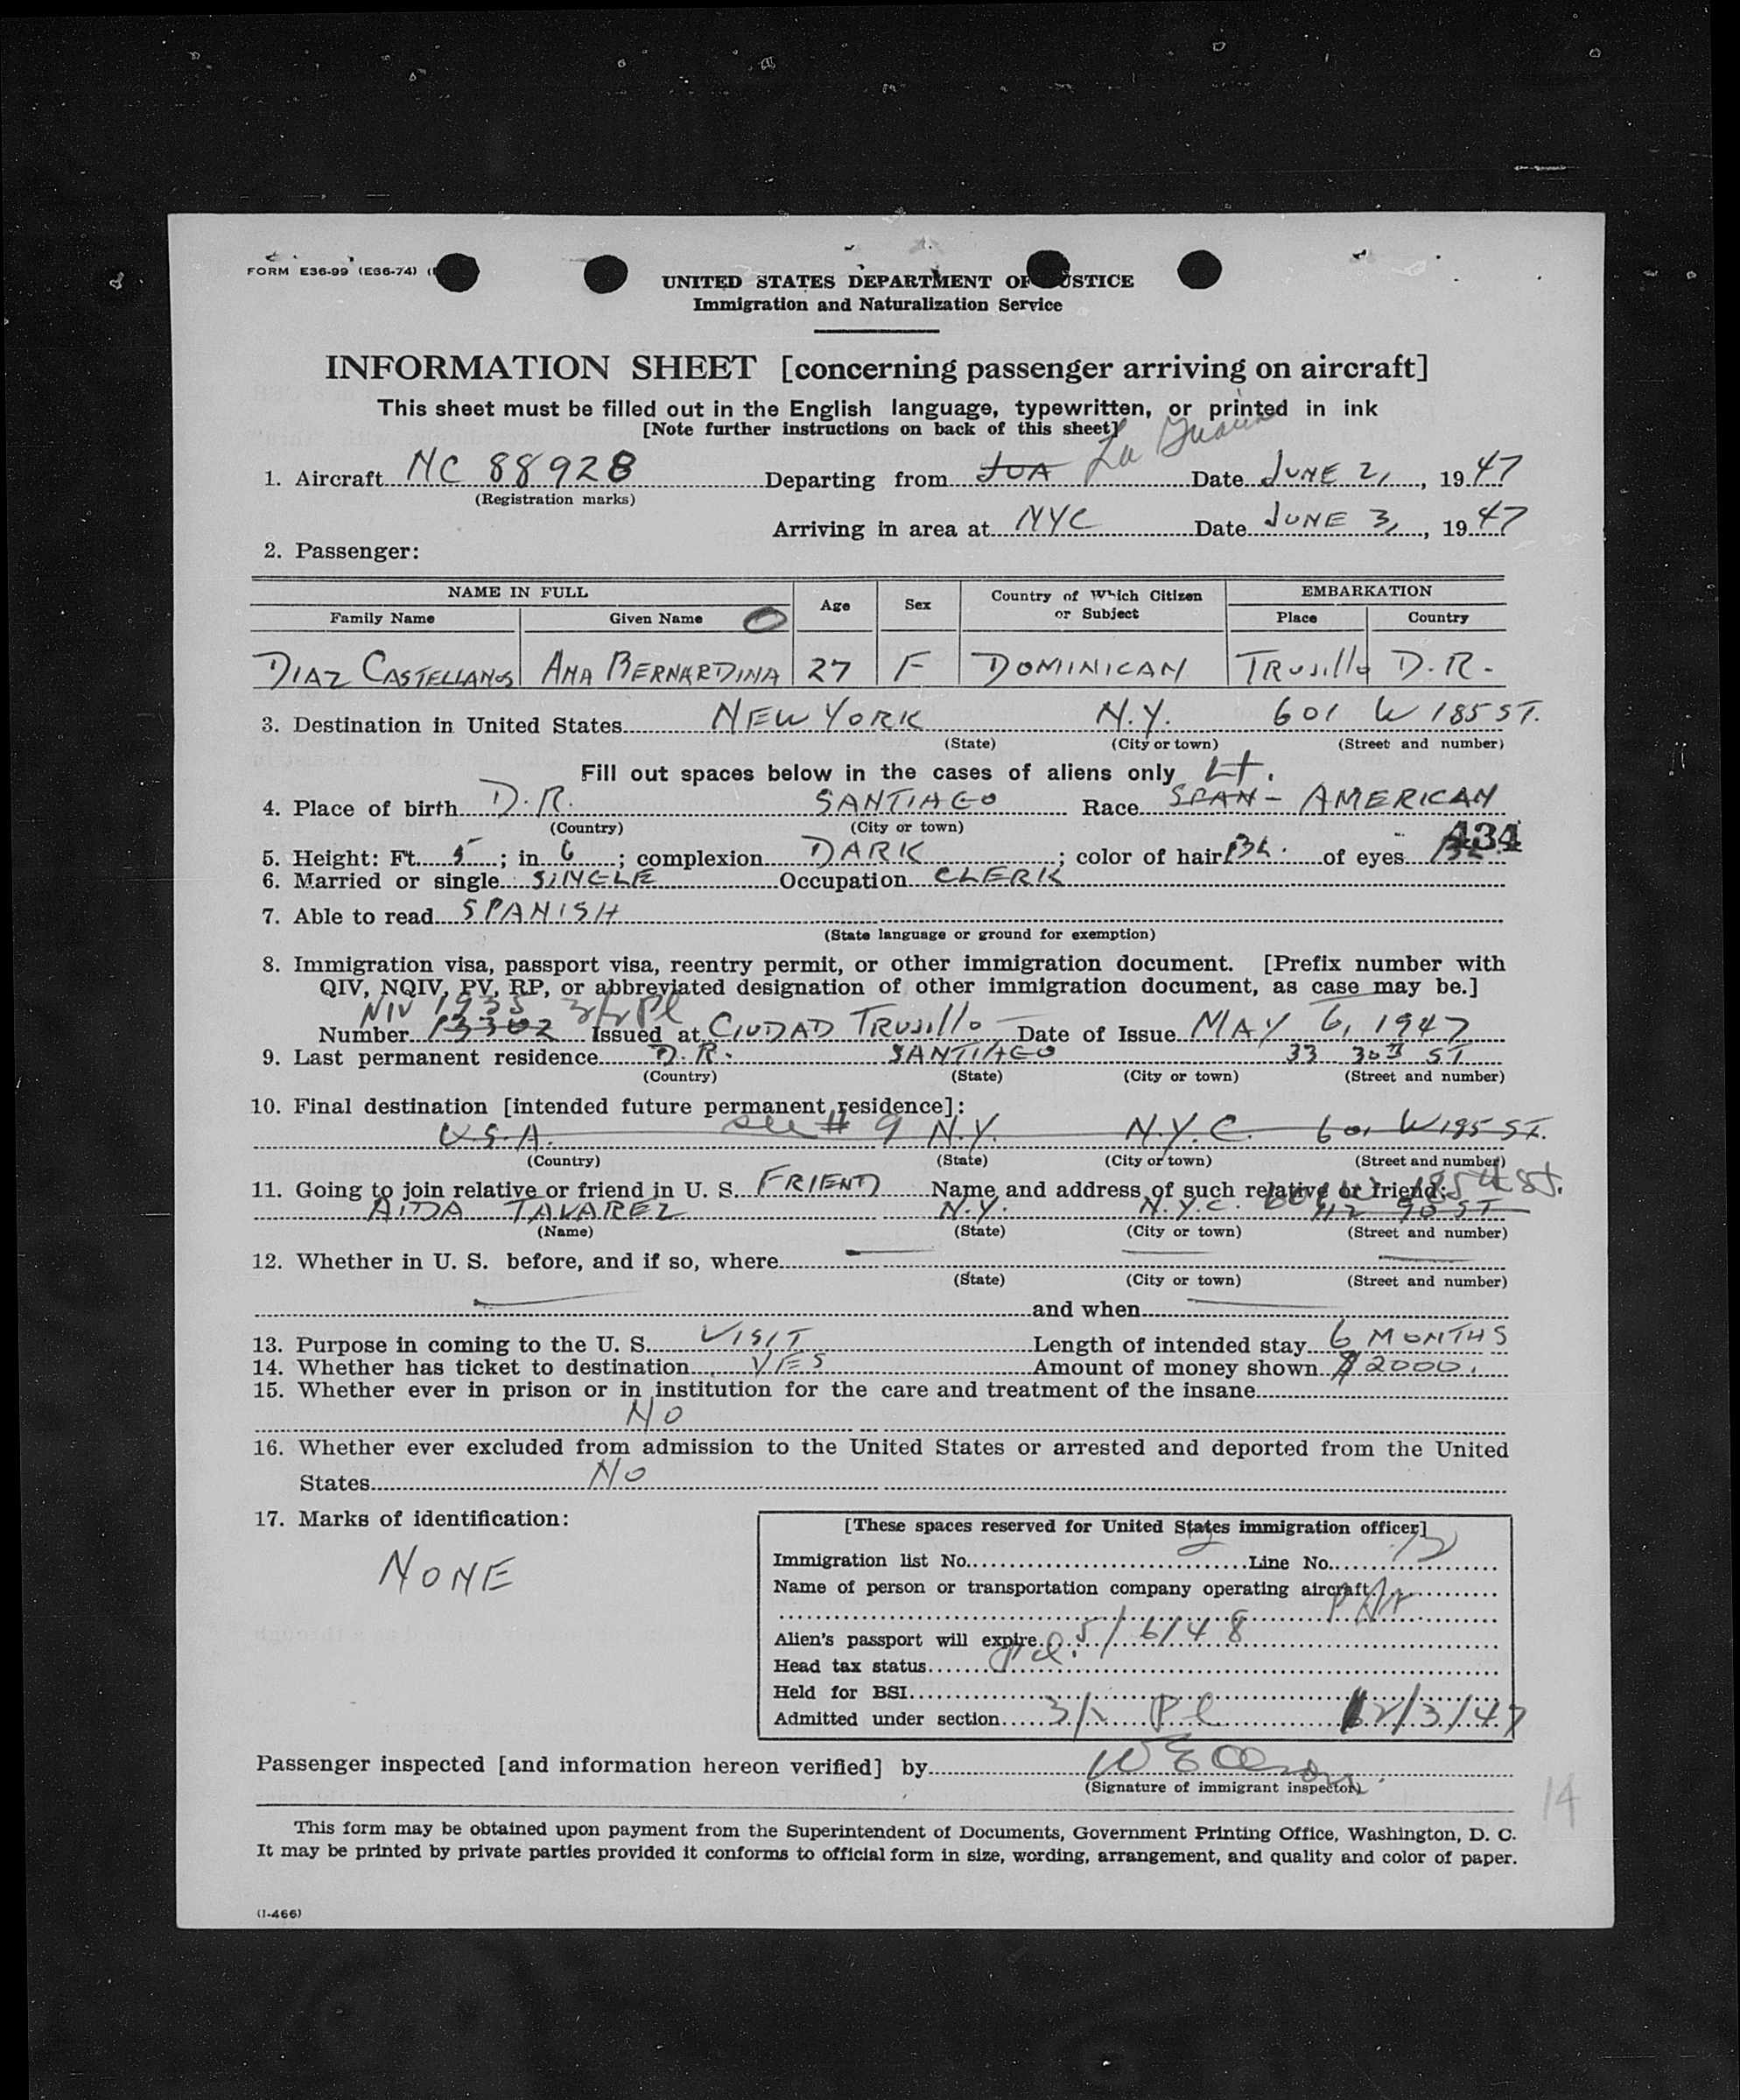 FORM E36-99 (E36-74)
UNITED STATES DEPARTMENT OF JUSTICE
Immigration and Naturalization Service
INFORMATION SHEET [concerning passenger arriving on aircraft]
This sheet must be filled out in the English language, typewritten, or printed in ink
[Note further instructions on back of this sheet]
La Guaira
1. Aircraft NC 88928 Departing from JUA Date JUNE 2, 1947
(Registration marks)
Arriving in area at NYC Date JUNE 3, 1947
2. Passenger:
NAME IN FULL Age Sex Country of Which Citizen or Subject EMBARKATION
Family Name Given Name Place Country
DIAZ CASTELLANOS ANA BERNARDINA 27 F DOMINICAN TRUJILLO D.R.
3. Destination in United States NEW YORK N.Y. 601 W 185 ST.
(State) (City or town) (Street and number)
Fill out spaces below in the cases of aliens only
4. Place of birth D.R. SANTIAGO Race SPAN-AMERICAN
(Country) (City or town)
434
5. Height: Ft. 5; in 6; complexion DARK; color of hair BL. of eyes BL.
6. Married or single SINGLE Occupation CLERK
7. Able to read SPANISH
(State language or ground for exemption)
8. Immigration visa, passport visa, reentry permit, or other immigration document. [Prefix number with
QIV, NQIV, PV, RP, or abbreviated designation of other immigration document, as case may be.]
NIV 1935 3/2 Pl
Number 13302 Issued at CIUDAD TRUJILLO Date of Issue MAY 6, 1947
9. Last permanent residence D.R. SANTIAGO 33 30 ST
(Country) (State) (City or town) (Street and number)
10. Final destination [intended future permanent residence]:
see # 9
U.S.A. N.Y. N.Y.C. 601 W 185 ST.
(Country) (State) (City or town) (Street and number)
11. Going to join relative or friend in U. S. FRIEND Name and address of such relative or friend:
601 W 185th St.
AIDA TAVAREZ N.Y. N.Y.C. 112 90 ST
(Name) (State) (City or town) (Street and number)
12. Whether in U. S. before, and if so, where
(State) (City or town) (Street and number)
and when
13. Purpose in coming to the U. S. VISIT Length of intended stay 6 MONTHS
14. Whether has ticket to destination YES Amount of money shown $2000.
15. Whether ever in prison or in institution for the care and treatment of the insane
NO
16. Whether ever excluded from admission to the United States or arrested and deported from the United
States NO
17. Marks of identification:
NONE
[These spaces reserved for United States immigration officer]
Immigration list No. 2 Line No. 12
Name of person or transportation company operating aircraft
Alien's passport will expire 5/6/48
Head tax status
Held for BSI
Admitted under section 3/2 Pl 12/3/47
Passenger inspected [and information hereon verified] by
(Signature of immigrant inspector)
14
This form may be obtained upon payment from the Superintendent of Documents, Government Printing Office, Washington, D. C.
It may be printed by private parties provided it conforms to official form in size, wording, arrangement, and quality and color of paper.
(I-466)